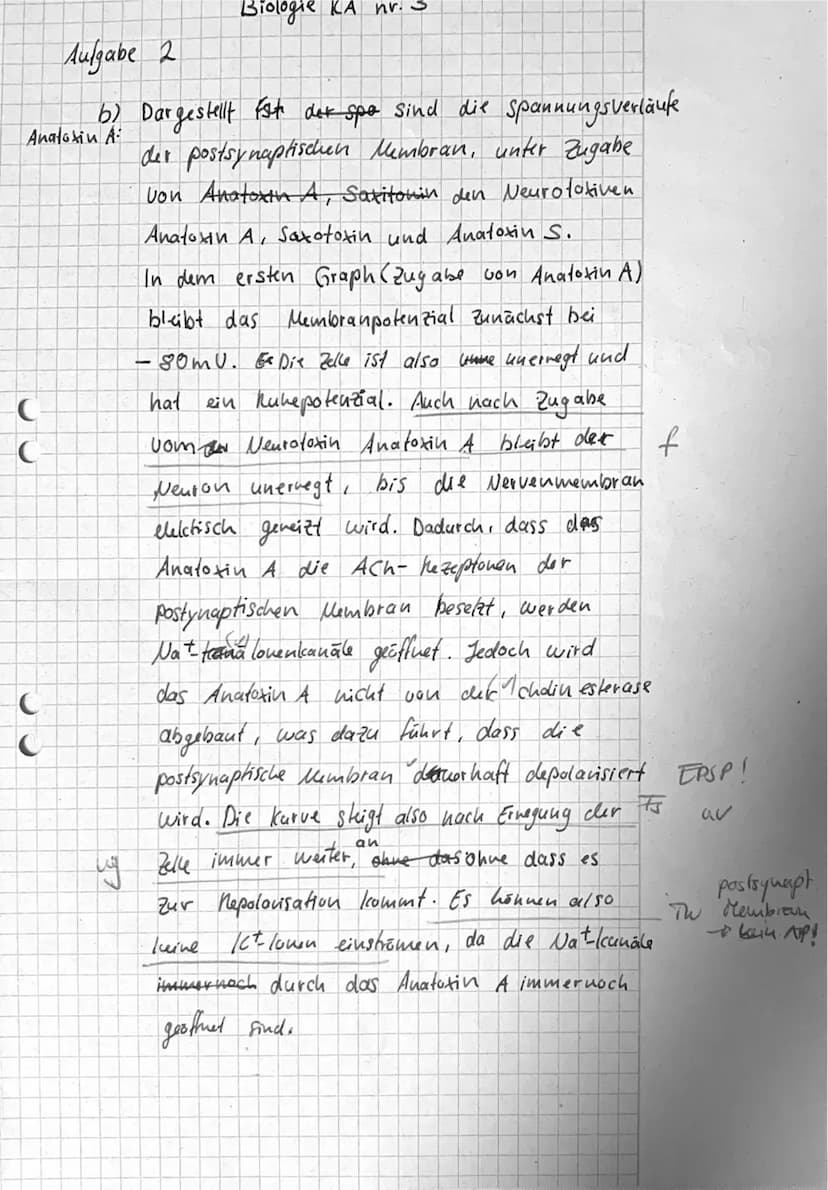 Biologie KA nr. 3
Aufgabe 2
b) Dargestellt ist der spo sind die spannungsverläufe
Anatoxin A:
der postsynaptischen Membran, unter Zugabe
von Anatoxin A, Saxitonin den Neurotoxinen
Anatoxin A, Saxotoxin und Anatoxin S.
In dem ersten Graph (Zugabe von Anatoxin A)
bleibt das Membranpotenzial zunächst bei
- 80mV. Es Die Zelle ist also unerregt und
hat ein Ruhepotenzial. Auch nach Zugabe
vom Neurotoxin Anatoxin A bleibt der f
Neuron unerregt, bis die Nervenmembran
elektisch gereizt wird. Dadurch, dass das
Anatoxin A die ACh- Rezeptoren der
postynaptischen Membran besetzt, werden
Na+- Ionenkanäle geöffnet. Jedoch wird
das Anatoxin A nicht von der cholinesterase
abgebaut, was dazu führt, dass die
postsynaptische Membran dauerhaft depolarisiert EPSP!
wird. Die Kurve steigt also nach Erregung der Ts
Zelle immer weiter, an ohne das ohne dass es
zur Repolarisation kommt. Es können also
postsynapt.
Membran
→ kein AP!
keine K+-Ionen einströmen, da die Na+-kanäle
immernoch durch das Anatoxin A immernoch
geöffnet sind.